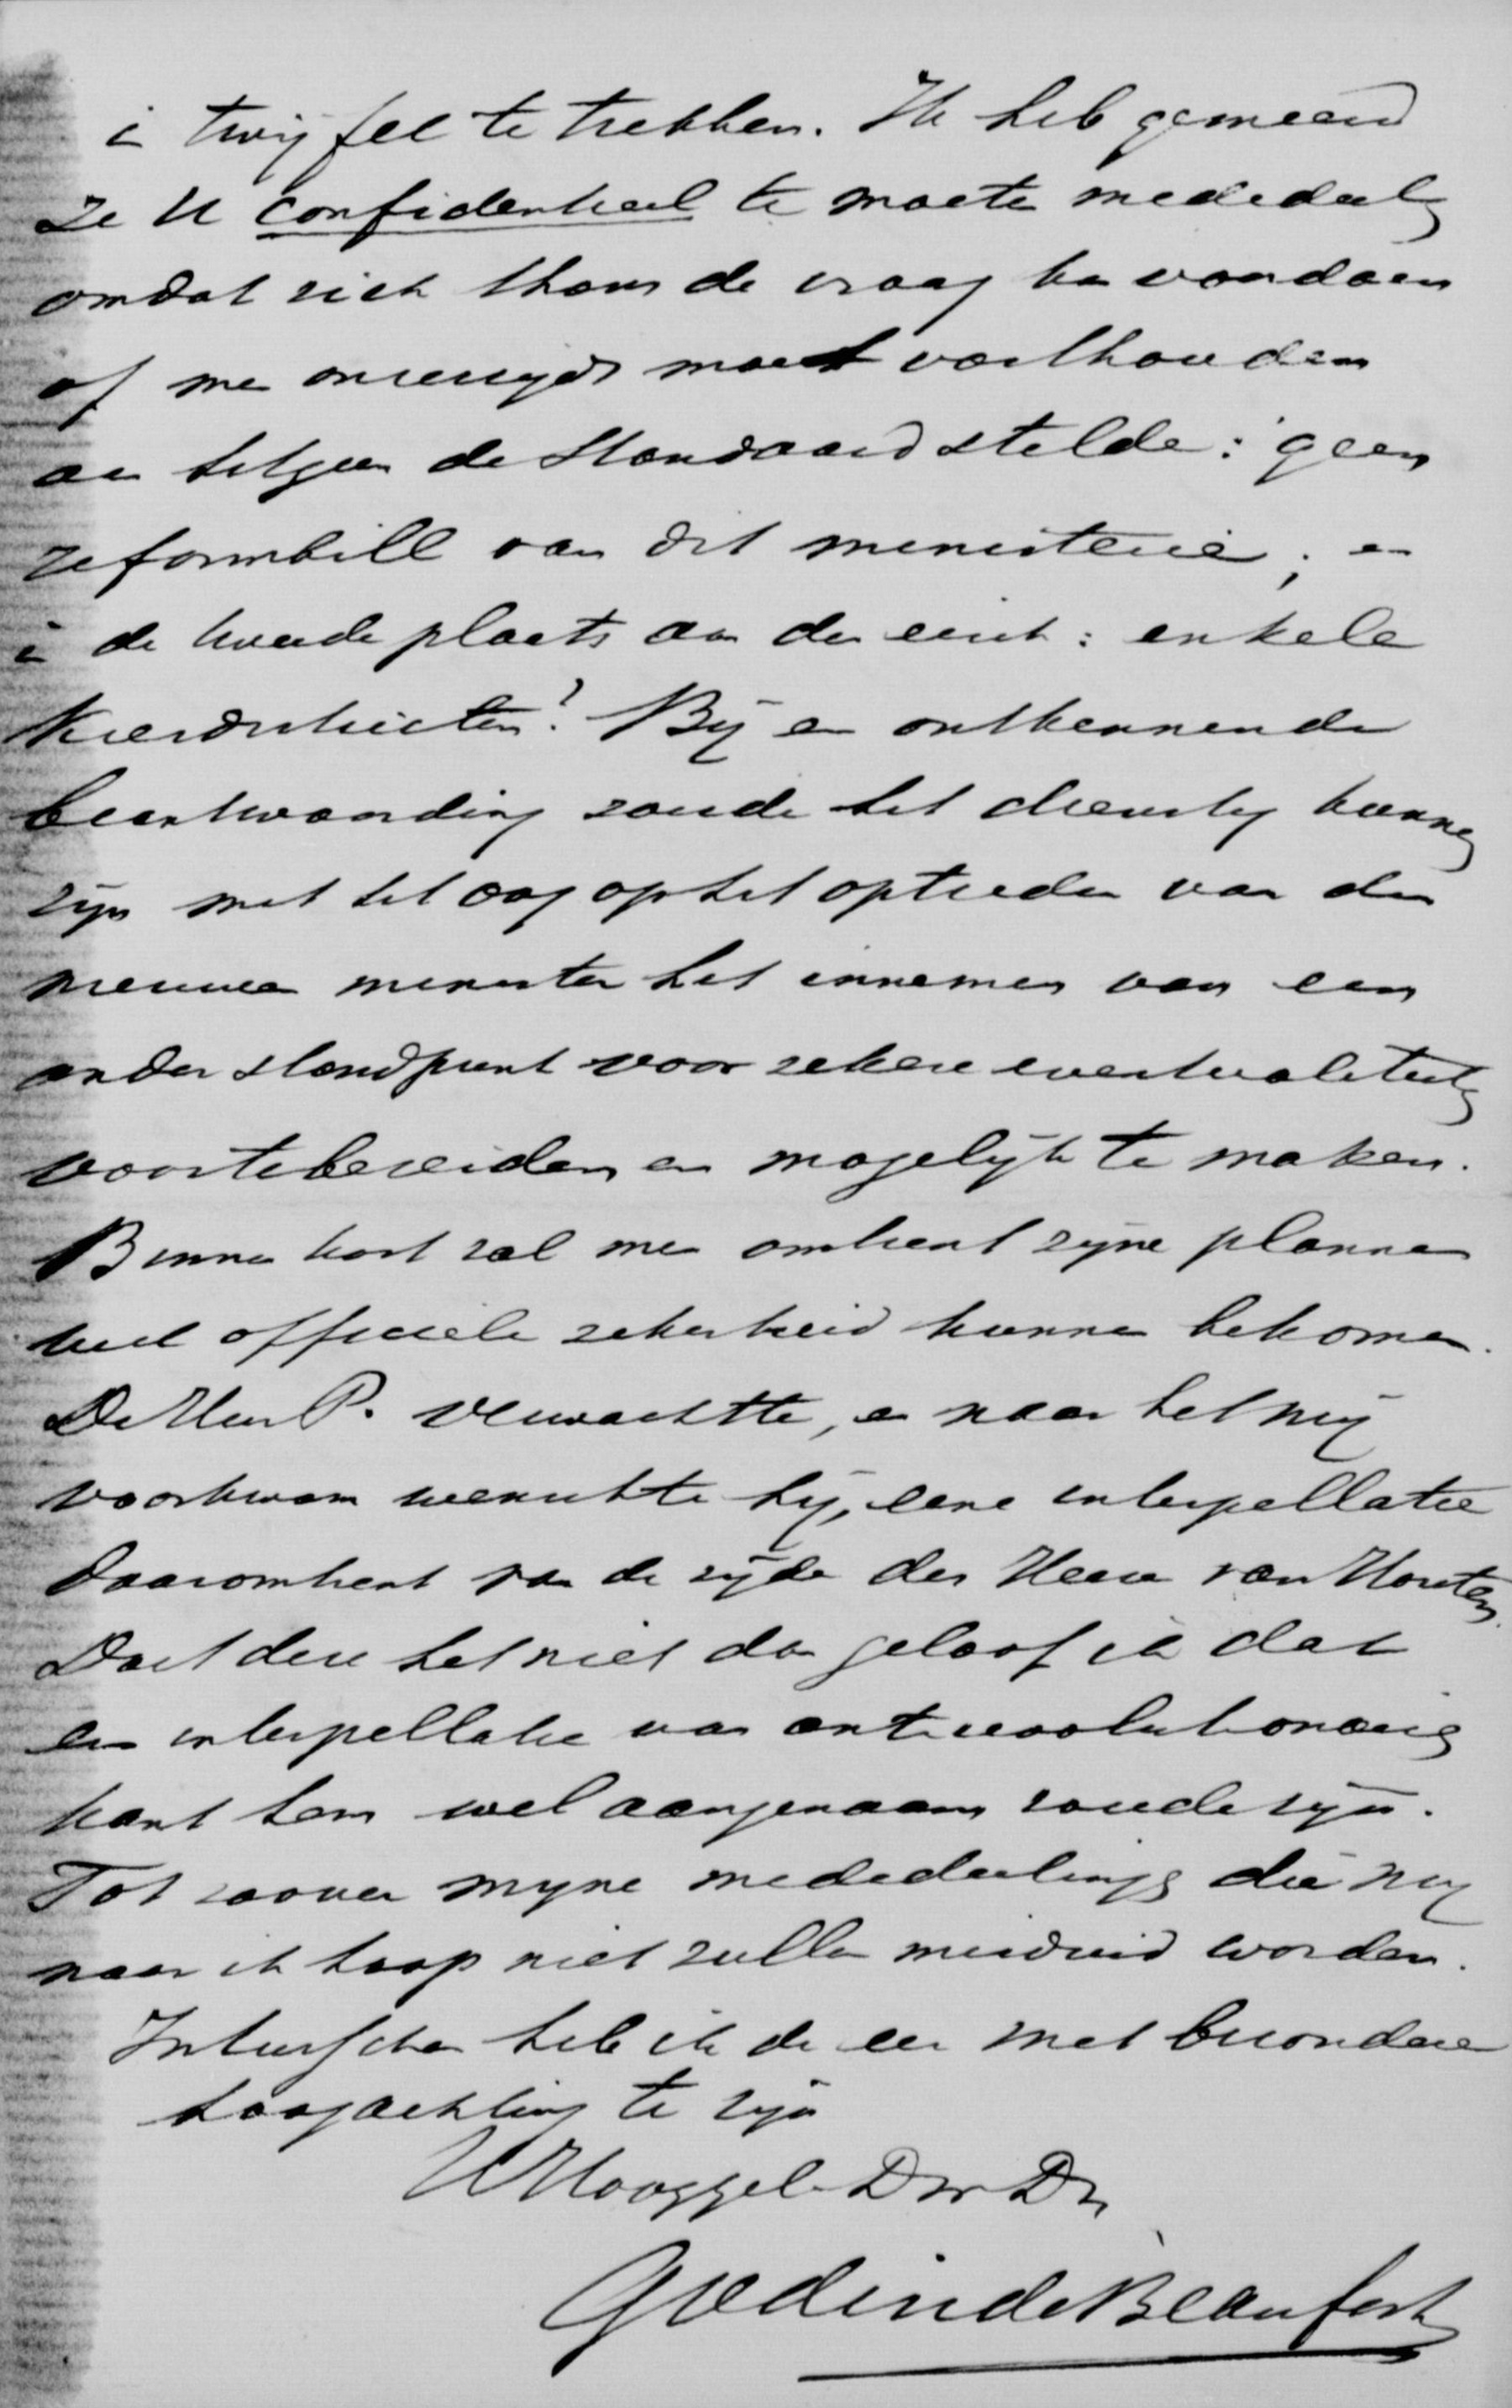 in twijfel te trekken. Ik heb gemeend
ze U confidentieel te moeten mededeelen
omdat zich thans de vraag kan voordoen
of men onzerzijds moet vasthouden
aan hetgeen de Standaard stelde: geen
reformbill van dit ministerie; en
in de tweede plaats aan den eisch: enkele
Kiesdistricten? Bij een ontkennende
beantwoording zoude het dienstig kunnen
zijn met het oog op het optreden van den
nieuwen minister het innemen van een
ander standpunt voor zekere eventualiteiten
voortebereiden en mogelijk te maken.
Binnen kort zal men omtrent zijne plannen
wel officieele zekerheid kunnen bekomen.
De Heer P. verwachtte, en naar het mij
voorkwam wenschte hij, eene interpellatie
daaromtrent van de zijde des Heeren van Houten.
Doet deze het niet dan geloof ik dat
een interpellatie van antirevolutionairen
kant hem wel aangenaam zoude zijn.
Tot zoover mijne mededeelingen die mij
naar ik hoop niet zullen misduid worden.
Intusschen heb ik de eer met bizondere
hoogachting te zijn
UHooggel. Dw Dr
Godin de Beaufort